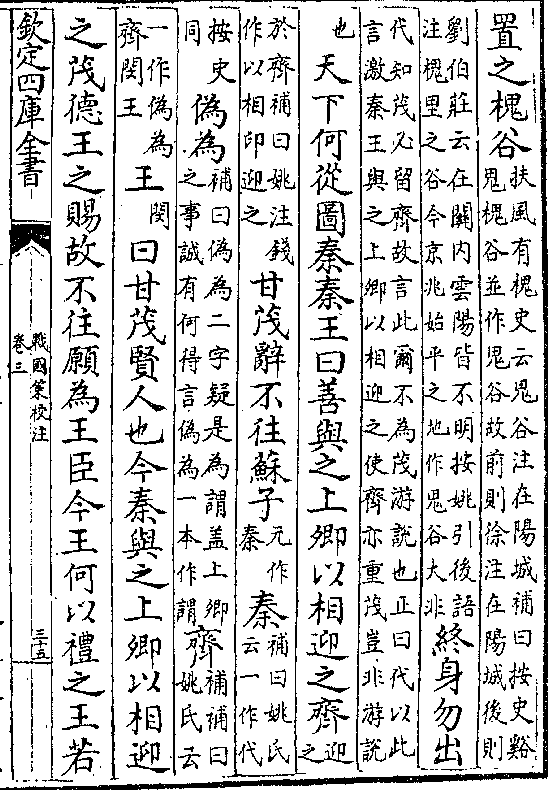 置之槐谷扶風有槐史云鬼谷注在陽城補曰按史谿鬼槐谷並作鬼谷故前則徐注在陽城後則
劉伯莊云在關內雲陽皆不明按姚引後語注槐里之谷今京兆始平之地作鬼谷大非終身勿出
代知茂必留齊故言此爾不為茂游說也正曰代以此言激秦王與之上卿以相迎之使齊亦重茂豈非游說
也天下何從圖秦秦王曰善與之上卿以相迎之齊迎之
於齊補曰姚注錢作以相印迎之甘茂辭不往蘇子元作秦秦補曰姚氏云一作代
按史同偽為補曰偽為二字疑是為謂盖上卿之事誠有何得言偽為一本作謂齊補補曰姚氏云
一作偽為齊閔王王閔曰甘茂賢人也今秦與之上卿以相迎
之茂德王之賜故不往願為王臣今王何以禮之王若
欽定四庫全書
戰國策校注
卷三
三十五